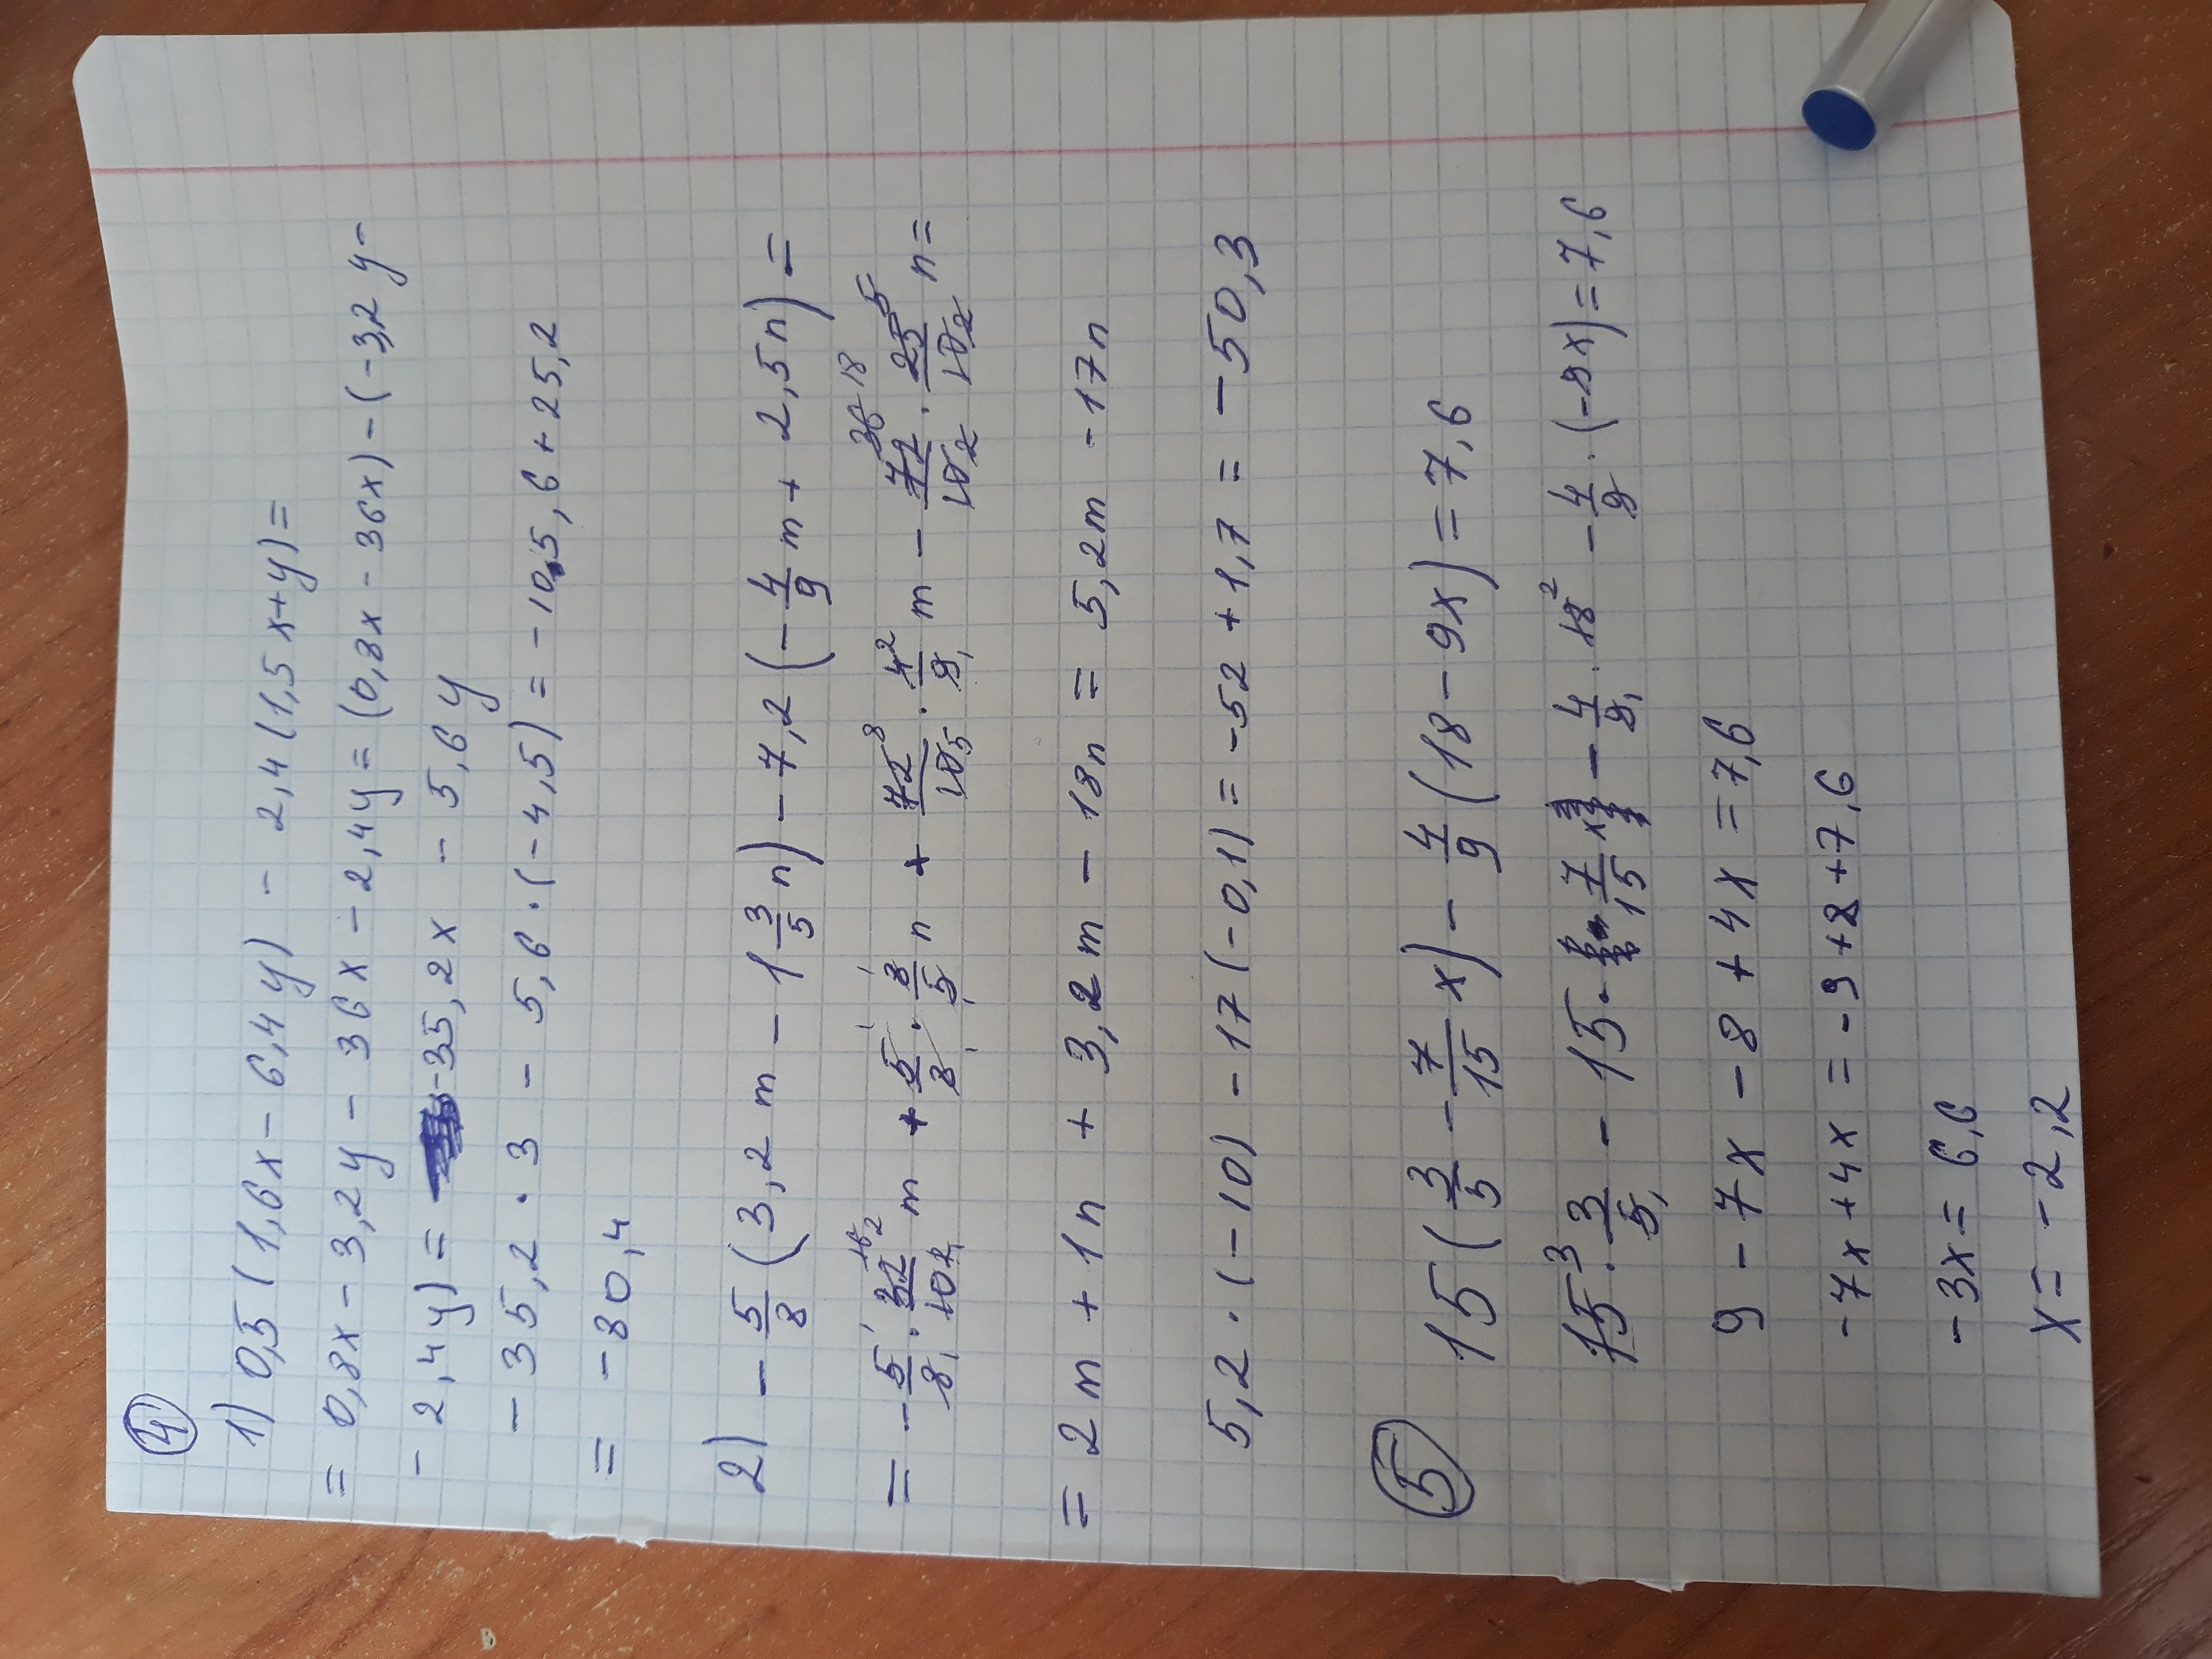 ④
1) 0,5(1,6x - 6,4y) - 2,4(1,5x+y) =
= 0,8x - 3,2y - 36x - 2,4y = (0,8x - 36x) - (-3,2y -
- 2,4y) = -35,2x - 5,6y
- 35,2 · 3 - 5,6 · (-4,5) = -105,6 + 25,2
= -80,4
2) - 5/8 (3,2m - 1 3/5 n) - 7,2 (- 4/9 m + 2,5n) =
= - 5/8 · 32/10 m + 5/8 · 8/5 n + 72/10 · 4/9 m - 72/10 · 25/10 n =
= 2m + 1n + 3,2m - 18n = 5,2m - 17n
5,2 · (-10) - 17(-0,1) = -52 + 1,7 = -50,3
⑤ 15 (3/5 - 7/15 x) - 4/9 (18 - 9x) = 7,6
15 · 3/5 - 15 · 7/15 x - 4/9 · 18 - 4/9 · (-9x) = 7,6
9 - 7x - 8 + 4x = 7,6
-7x + 4x = -9 + 8 + 7,6
-3x = 6,6
x = -2,2